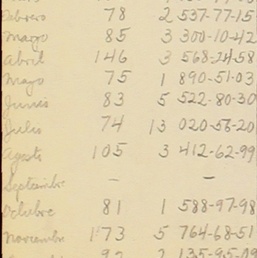 Febrero 78 2 537-77-15
Marzo 85 3 300-10-42
Abril 146 3 568-24-58
Mayo 75 1 890-51-03
Junio 83 5 522-80-30
Julio 74 13 020-56-20
Agosto 105 3 412-62-99
Septiembre - -
Octubre 81 1 588-97-98
Noviembre 173 5 764-68-51
92 2 135-95-09